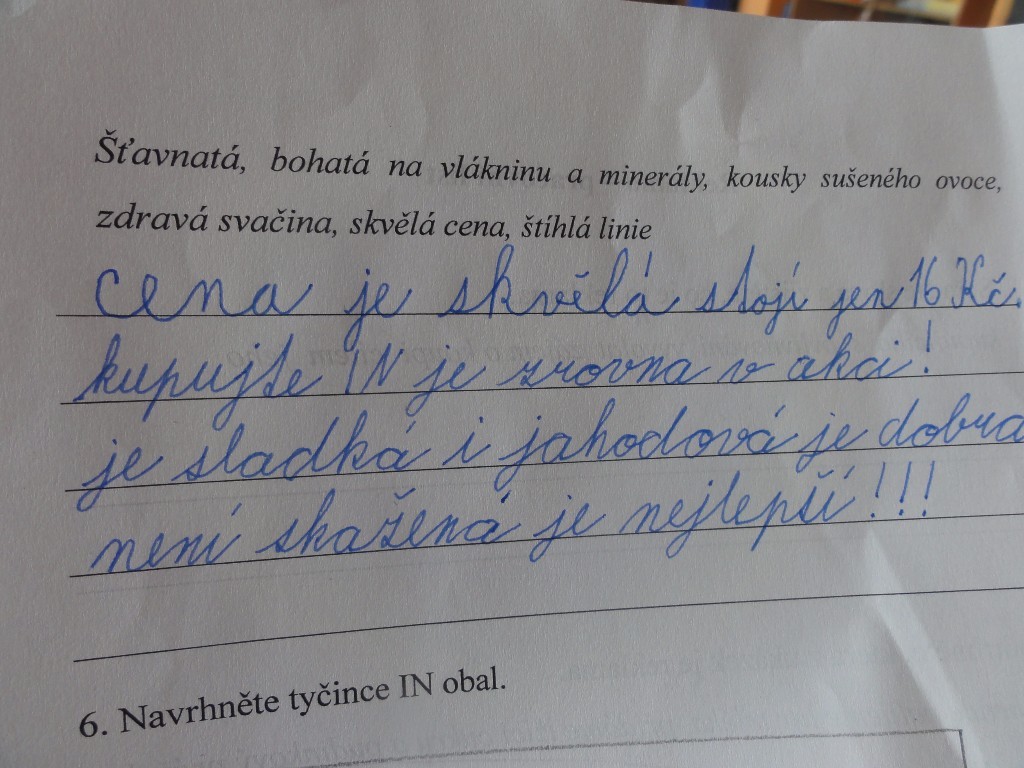 Šťavnatá, bohatá na vlákninu a minerály, kousky sušeného ovoce,
zdravá svačina, skvělá cena, štíhlá linie
cena je skvělá stojí jen 16 Kč.
kupujte IN je zrovna v akci!
je sladká i jahodová je dobrá
není skažená je nejlepší!!!
6. Navrhněte tyčince IN obal.